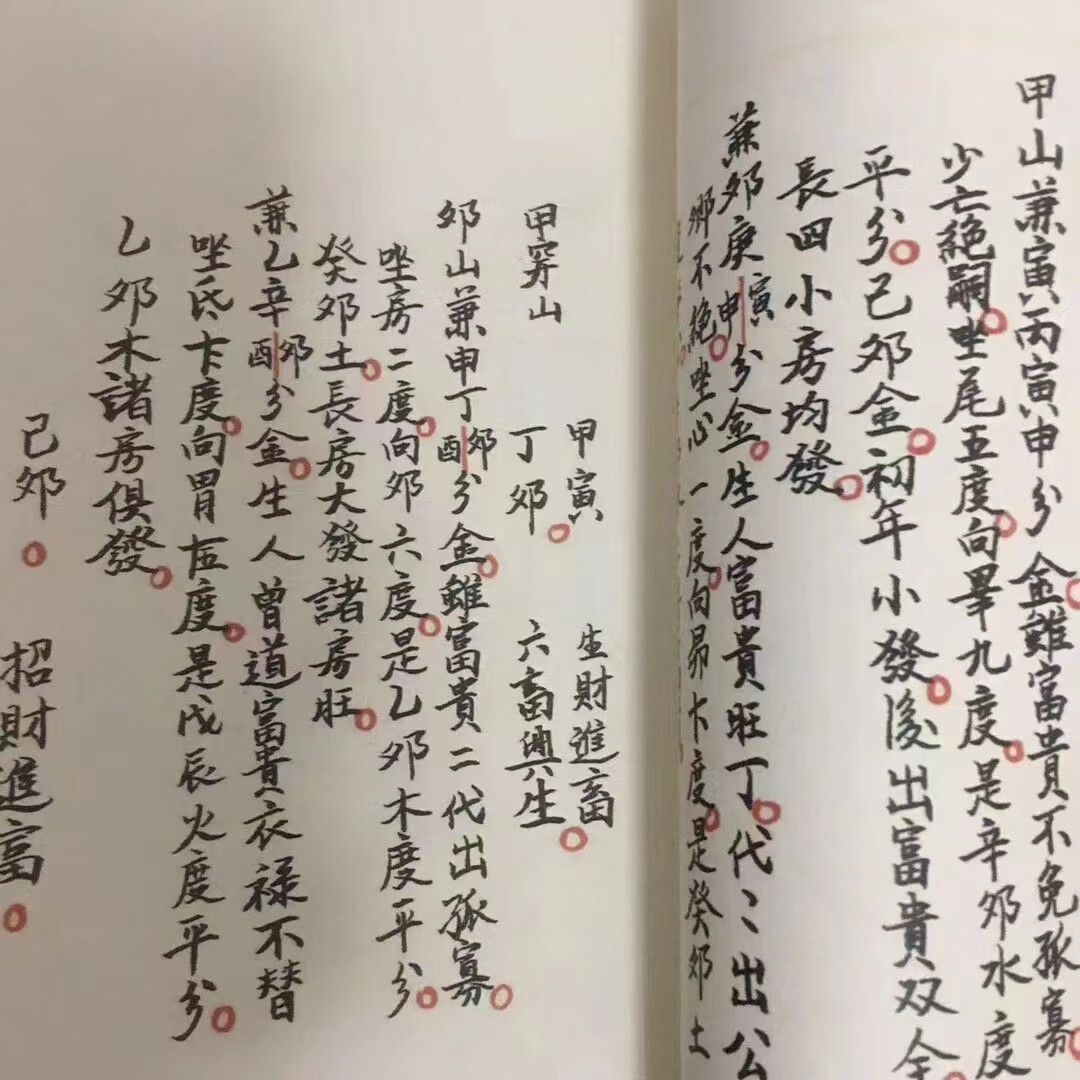 甲山兼寅丙寅申分金。雖富貴不免孤寡。
少亡絕嗣。坐尾五度。向畢九度。是辛卯水度
平分。己卯金。初年小發。後出富貴双全
長四小房均發。
兼卯庚寅申分金。生人富貴旺丁。代〻出公
鄉不絕。坐心一度。向昴度。是癸卯土
甲穿山
甲寅 生財進畜
丁卯。 六畜興生。
卯山兼甲丁卯酉分金。雖富貴二代出孤寡。
坐房二度。向卯六度。是乙卯木度平分。
癸卯土。長房大發諸房旺。
兼乙辛卯酉分金。生人曾道富貴衣祿不替
坐氐度。向胃度。是戊辰火度平分。
乙卯木諸房俱發。
己卯。 招財進畜。